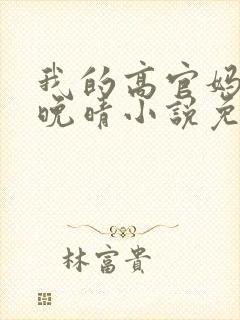 我的高官妈
晚晴小說免
林富貴